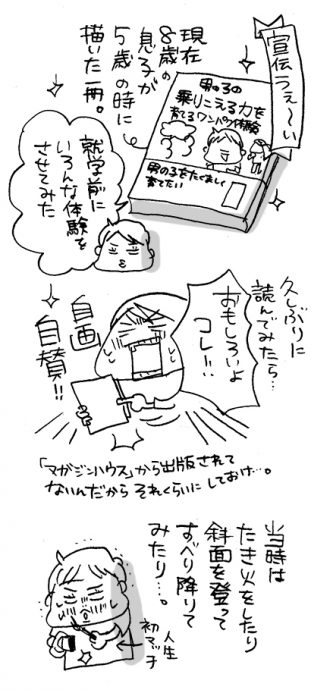 宣伝うぇ〜い
現在
8歳の
息子が
5歳の時に
描いた一冊。
男の子の
乗りこえる力を
育てるワンパク体験
男の子をたくましく
育てたい
就学前に
いろんな体験を
させてみた
久しぶりに
読んでみたら…
おもしろいよ
コレー!!
自画
自賛!!
「マガジンハウス」から出版されて
ないんだから それくらいに しておけ…。
当時は
たき火をしたり
斜面を登って
すべり降りて
みたり…。
人生
初マッチ